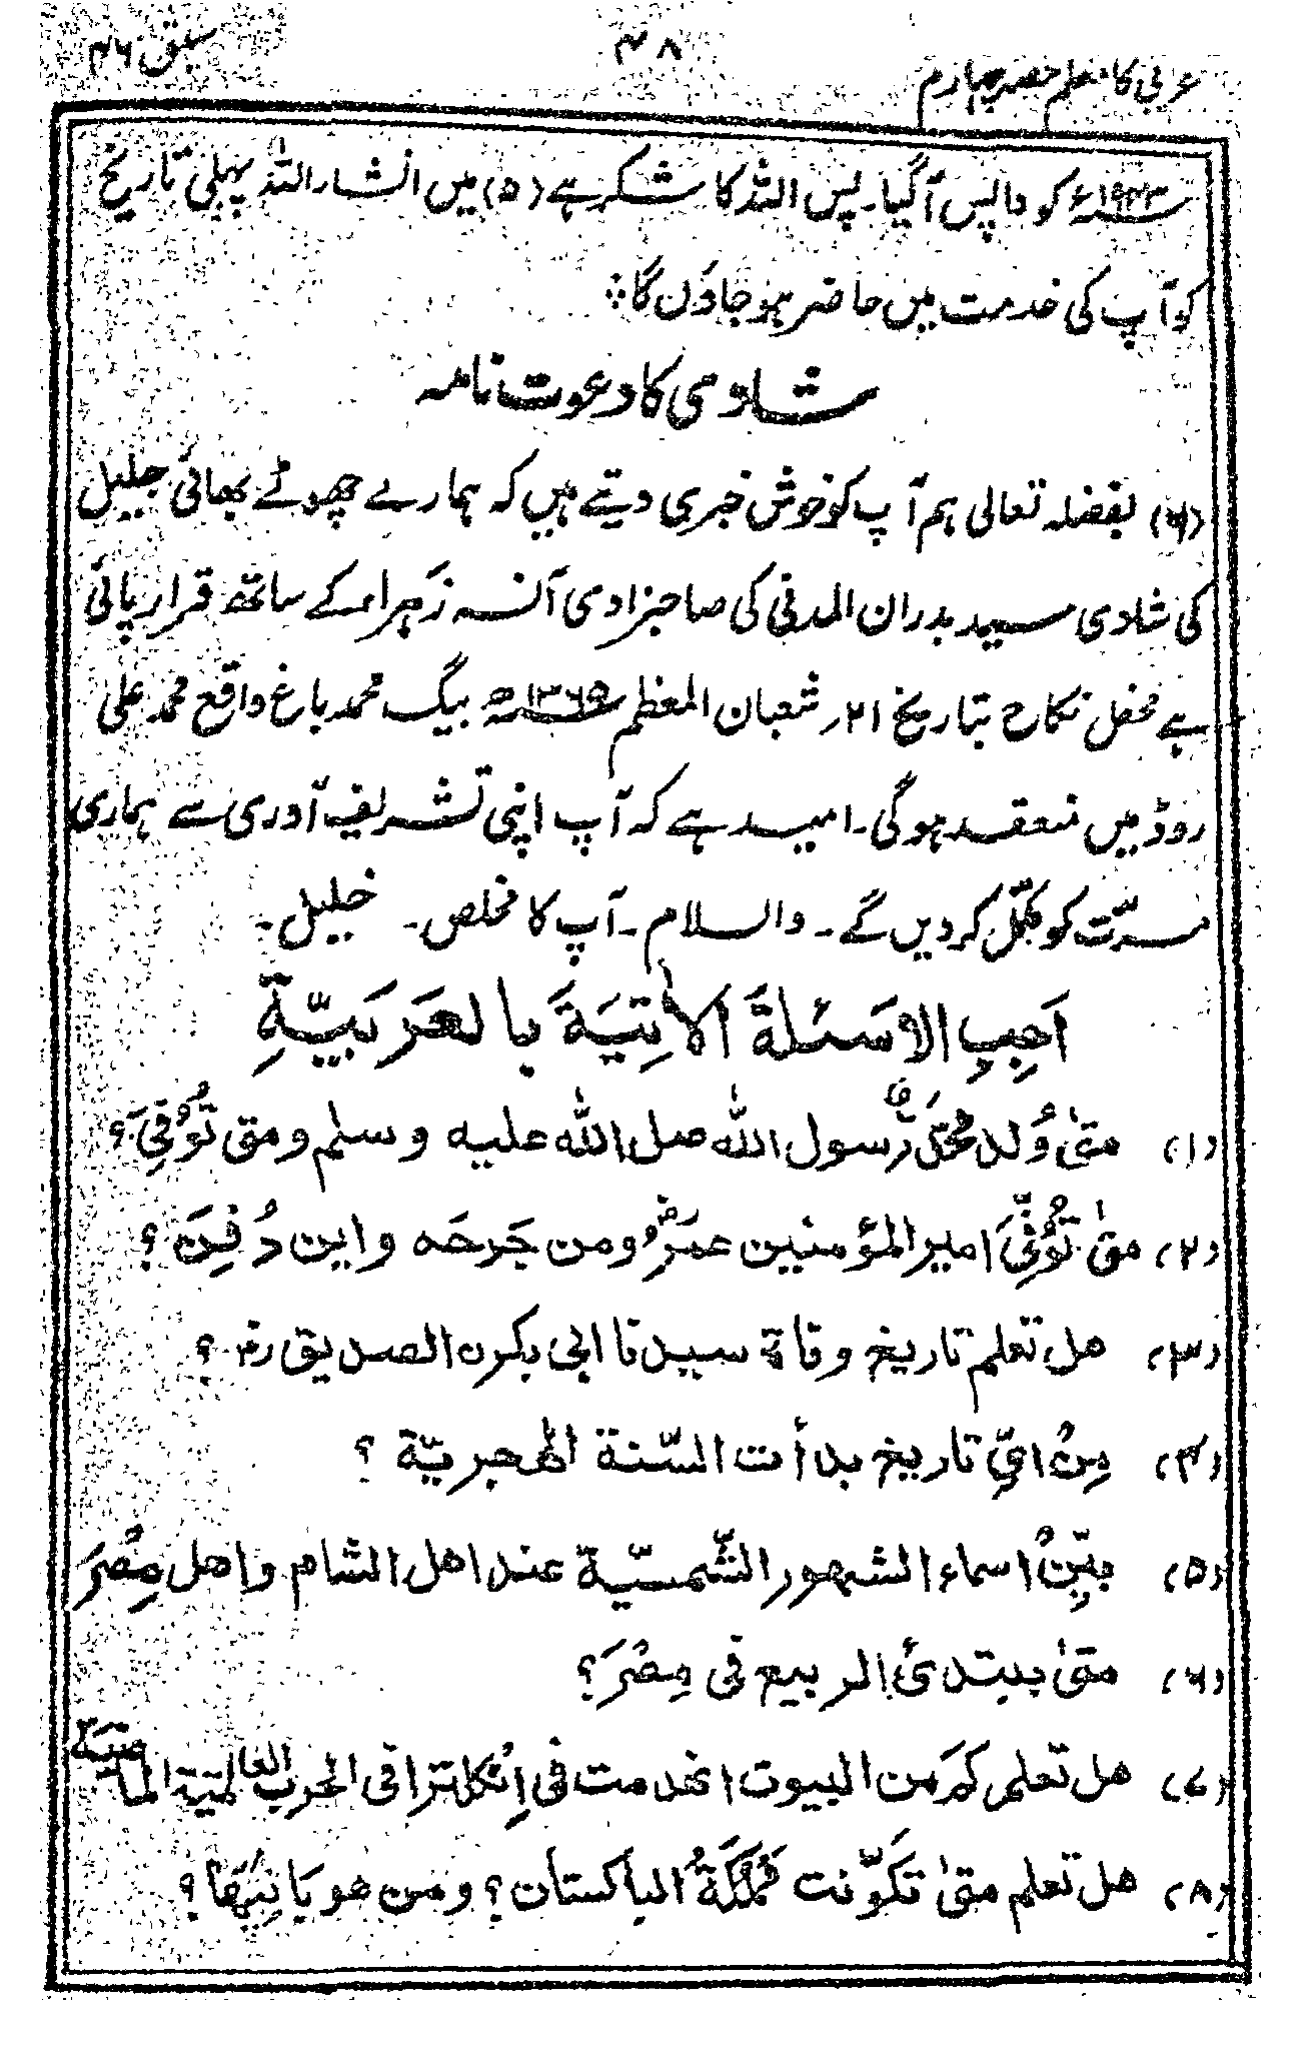 عربی کا معلم حصہ چہارم ۴۸ سبق ۴۶
۱۹۴۳ء کو واپس آگیا۔ پس اللہ کا شکر ہے (۵) میں انشاء اللہ پہلی تاریخ
کو آپ کی خدمت میں حاضر ہو جاؤں گا
شادی کا دعوت نامہ
(۶) بفضلہ تعالی ہم آپ کو خوش خبری دیتے ہیں کہ ہمارے چھوٹے بھائی جلیل
کی شادی سید بدران المدنی کی صاحبزادی آنسہ زہراء کے ساتھ قرار پائی
ہے محفل نکاح بتاریخ ۲۱ شعبان المعظم ۱۳۶۵ھ بیگ محمد باغ واقع محمد علی
روڈ میں منعقد ہوگی۔ امید ہے کہ آپ اپنی تشریف آوری سے ہماری
مسرّت کو مکمّل کر دیں گے۔ والسلام۔ آپ کا مخلص۔ خلیل۔
اَجِبِ الاَسَئلةَ الاٰتِيَةَ بالعَرَبيّةِ
(۱) متىٰ وُلد مُحمّد رّسول اللّٰه صل اللّٰه عليه وسلم ومتى تُوُفِّيَ؟
(۲) متىٰ تُوُفِّيَ امير المؤمنين عمَرُؓ ومن جَرحَه واين دُفِنَ؟
(۳) هل تعلم تاريخ وفاة سيدنا ابى بكرن الصديق رضـ؟
(۴) مِنْ اىِّ تاريخ بدأت السّنة الهجريّة؟
(۵) بيِّنْ اسماء الشهور الشّمسيّة عند اهل الشام واهل مِصْرَ
(۶) متىٰ يبتدئُ الربيع فى مِصْرَ؟
(۷) هل تعلم كم من البيوت انهدمت فى اِنْكلترا فى الحرب العالمية الماضيَة
(۸) هل تعلم متىٰ تكوّنت مَمْلَكَةُ الباكستان؟ ومن هو بانِيْهَا؟